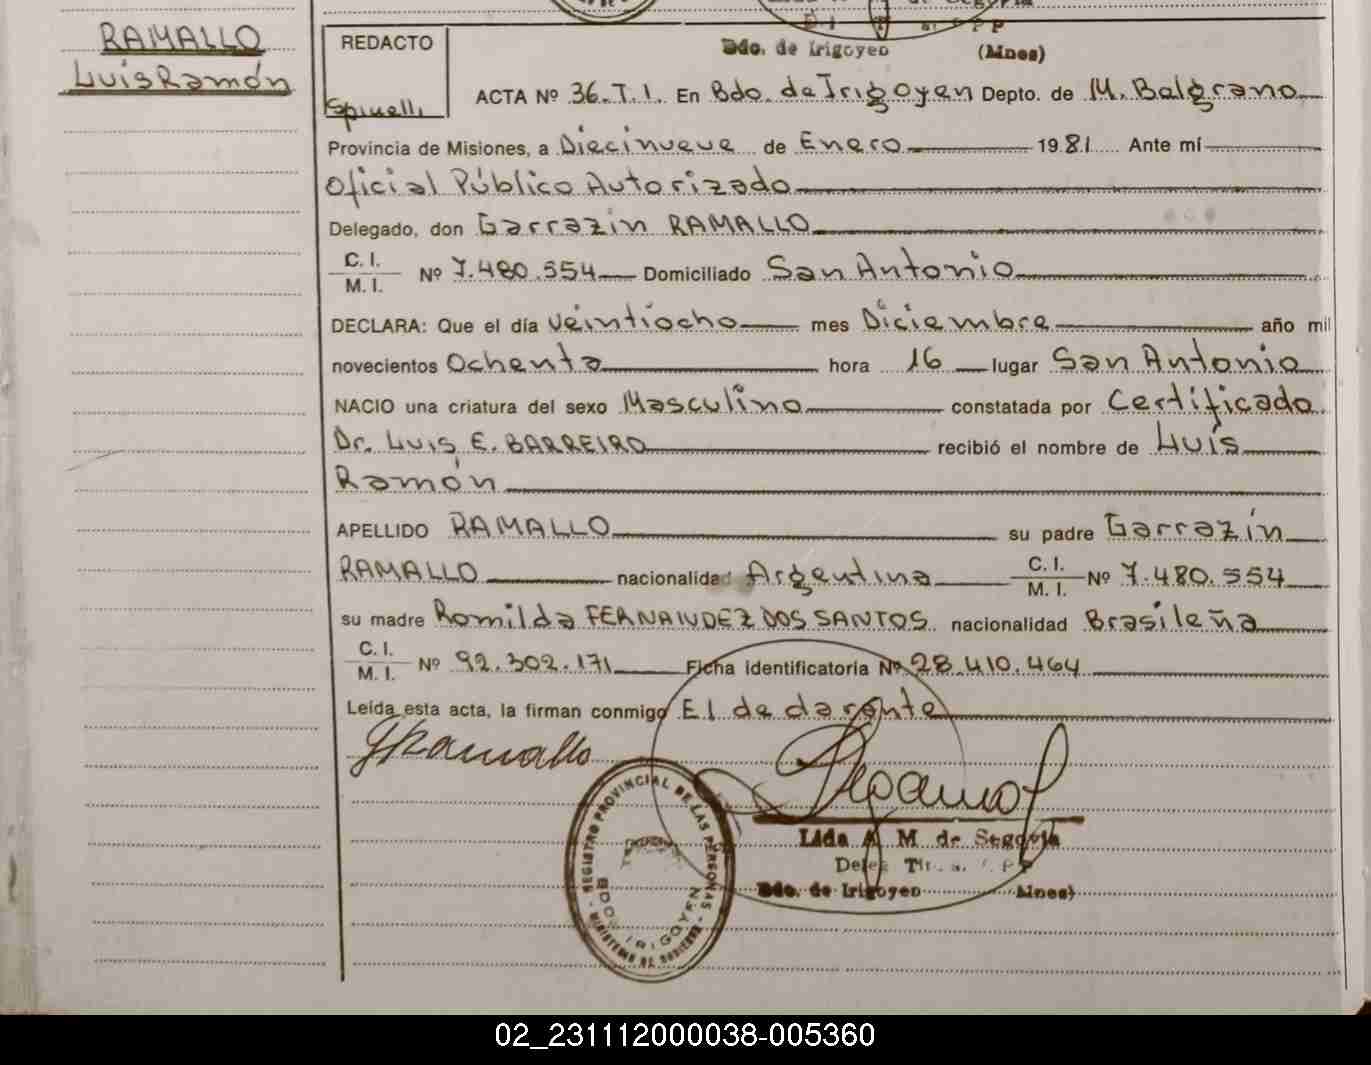 RAMALLO
Luis Ramón
REDACTO
Spinelli
Bdo. de Irigoyen (Mnes)
ACTA Nº 36.T.I. En Bdo. de Irigoyen Depto. de M. Belgrano
Provincia de Misiones, a Diecinueve de Enero 1981 Ante mí
Oficial Público Autorizado
Delegado, don Garrazin RAMALLO
C. I.
M. I. Nº 7.480.554 Domiciliado San Antonio
DECLARA: Que el día Veintiocho mes Diciembre año mil
novecientos Ochenta hora 16 lugar San Antonio
NACIO una criatura del sexo Masculino constatada por Certificado
Dr. Luis E. BARREIRO recibió el nombre de Luis
Ramón
APELLIDO RAMALLO su padre Garrazín
RAMALLO nacionalidad Argentina C. I.
M. I. Nº 7.480.554
su madre Romilda FERNANDEZ DOS SANTOS nacionalidad Brasileña
C. I.
M. I. Nº 92.302.171 Ficha identificatoria Nº 28.410.464
Leída esta acta, la firman conmigo El declarante
GRamallo
REGISTRO PROVINCIAL DE LAS PERSONAS - MINISTERIO DE GOBIERNO -
BDO. IRIGOYEN
Lida A. M. de Segovia
Bdo. de Irigoyen Mnes)
02_231112000038-005360